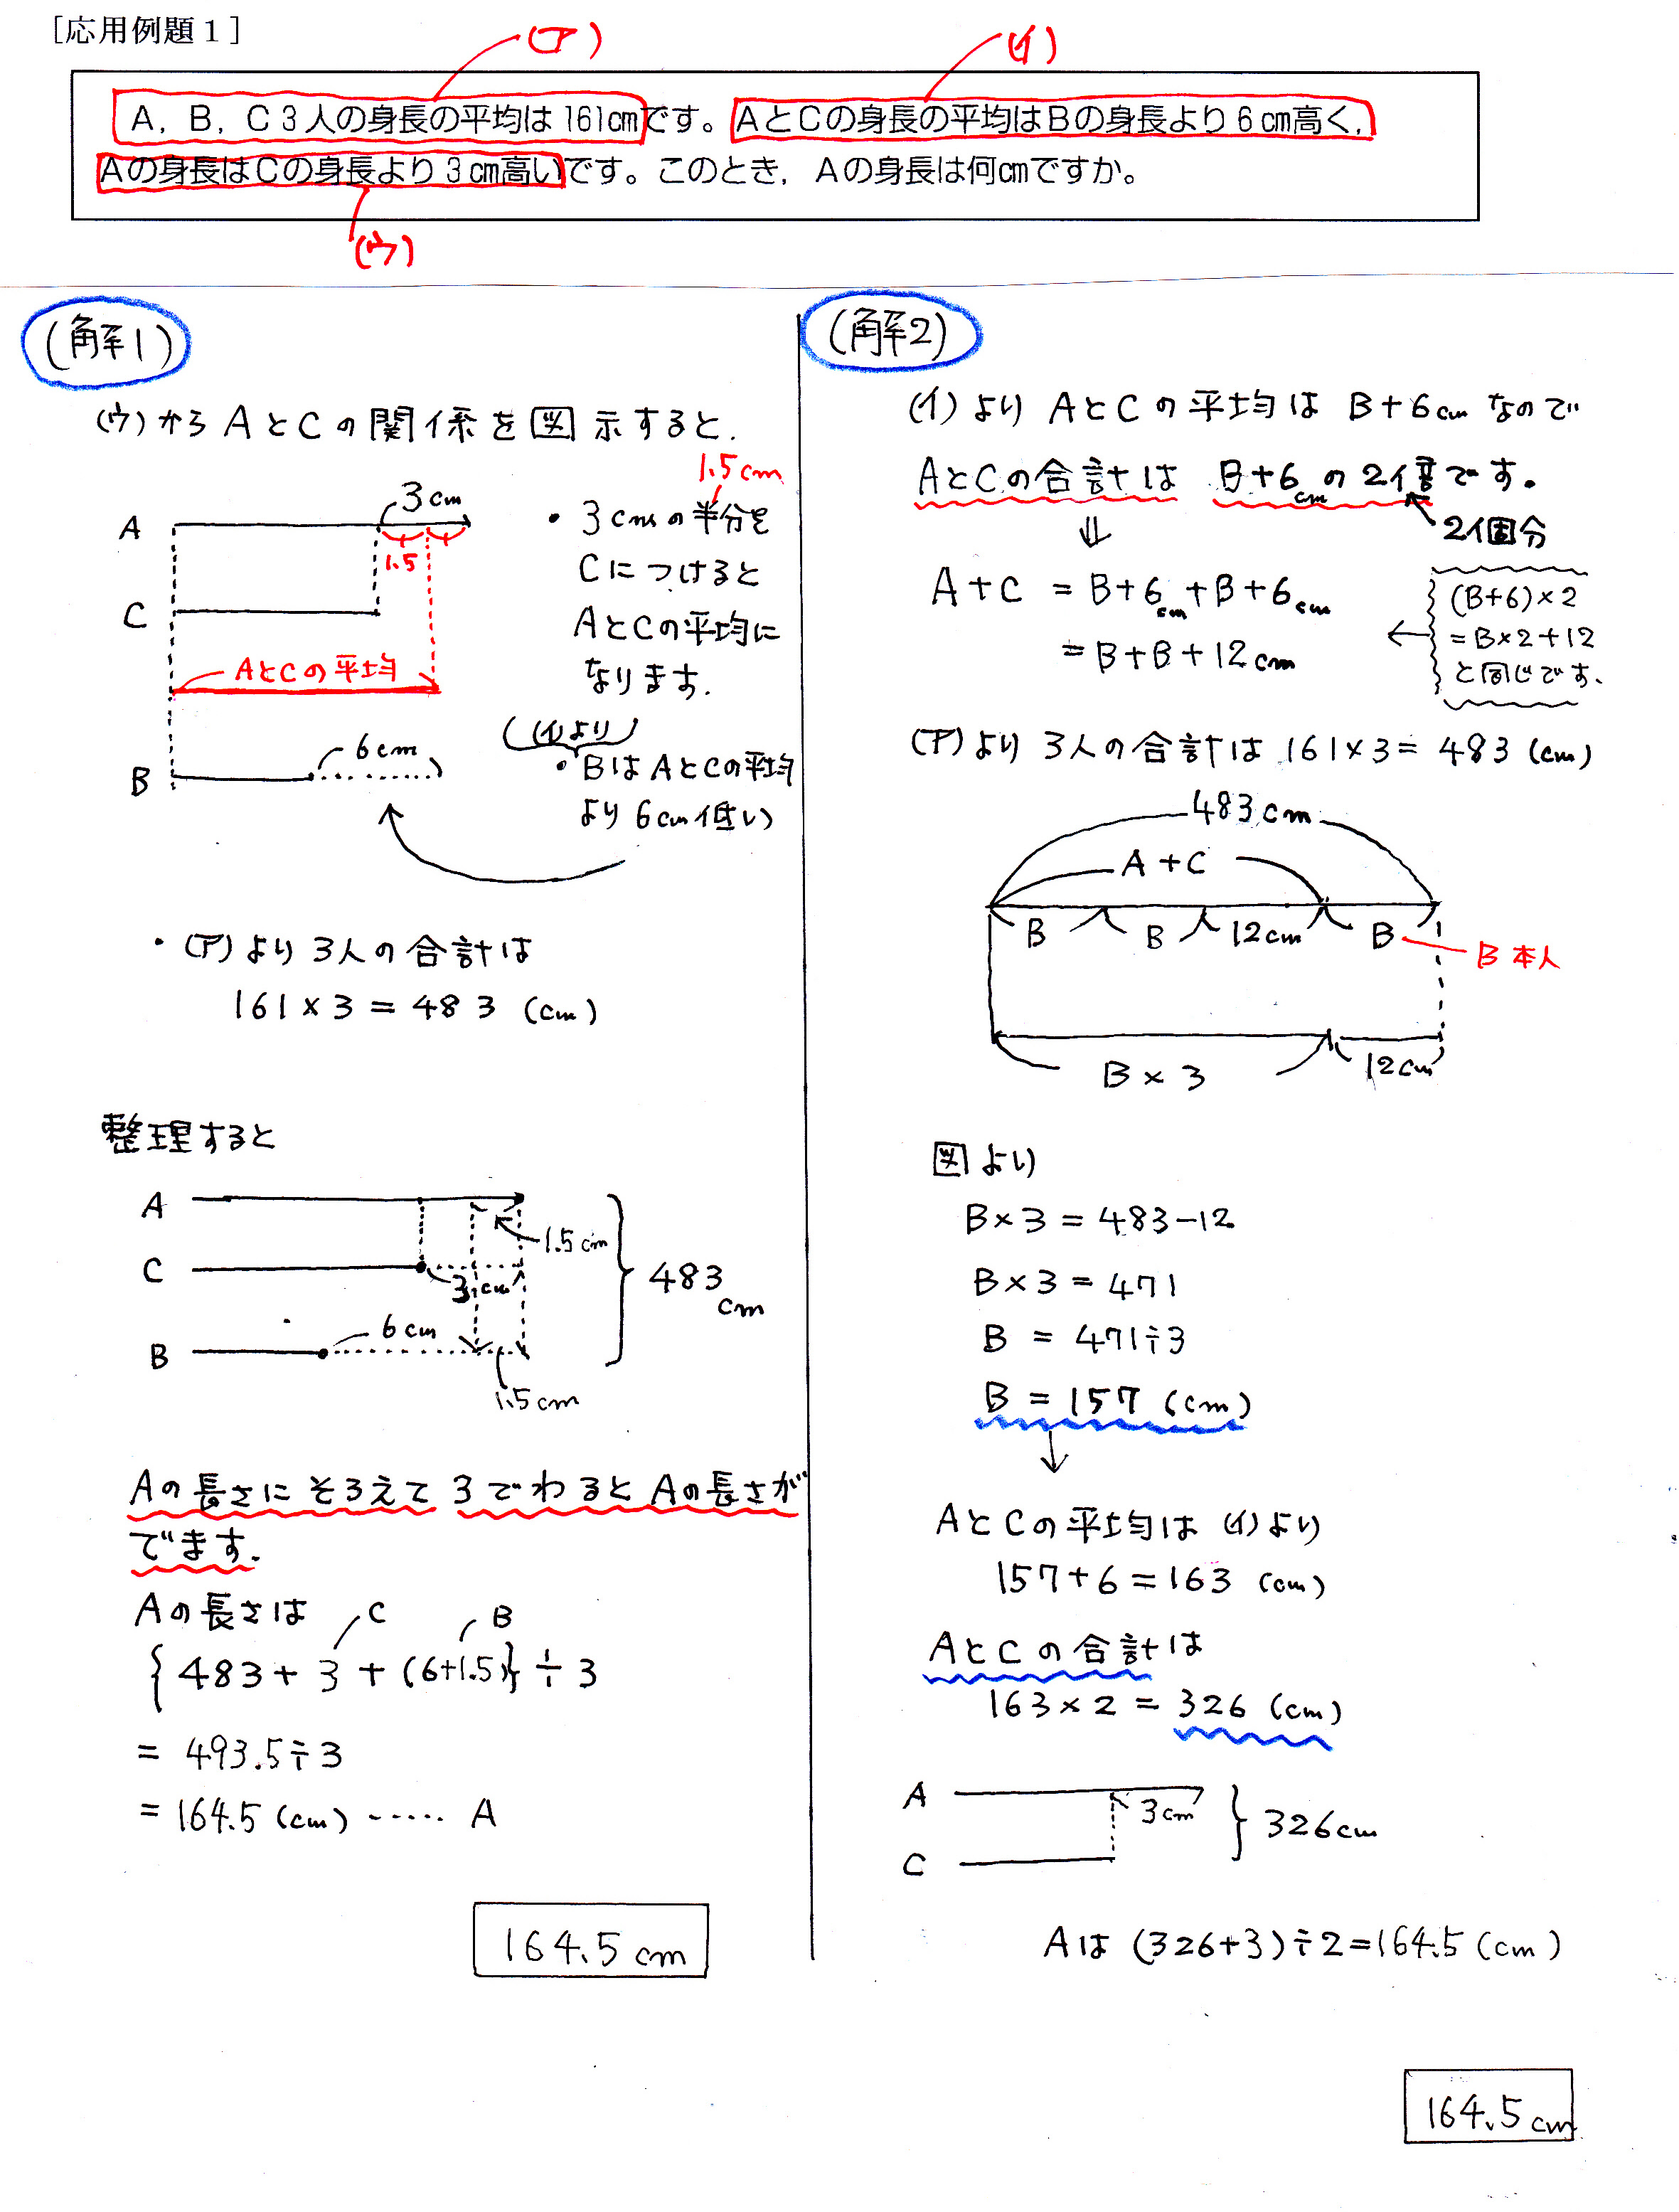 ［応用例題１］
(ア)
(イ)
A，B，C３人の身長の平均は161cmです。AとCの身長の平均はBの身長より6cm高く，
Aの身長はCの身長より3cm高いです。このとき，Aの身長は何cmですか。
(ウ)
(解1)
(ウ)からAとCの関係を図示すると.
1.5cm
3cm
A
1.5
C
AとCの平均
・3cmの半分を
Cにつけると
AとCの平均に
なります.
(イ)より
6cm
B
・BはAとCの平均
より6cm低い
・(ア)より3人の合計は
161×3=483 (cm)
整理すると
A
1.5cm
C
3cm
483cm
6cm
B
1.5cm
Aの長さにそろえて3でわるとAの長さが
でます.
Aの長さは
C
B
{483+3+(6+1.5)}÷3
=493.5÷3
=164.5(cm)……A
164.5cm
(解2)
(イ)よりAとCの平均はB+6cmなので
AとCの合計はB+6cmの2倍です。
2個分
A+C=B+6cm+B+6cm
=B+B+12cm
(B+6)×2
=B×2+12
と同じです.
(ア)より3人の合計は161×3=483(cm)
483cm
A+C
B B 12cm B
B本人
B×3
12cm
図より
B×3=483-12
B×3=471
B=471÷3
B=157(cm)
AとCの平均は(イ)より
157+6=163(cm)
AとCの合計は
163×2=326(cm)
A
3cm
326cm
C
Aは(326+3)÷2=164.5(cm)
164.5cm